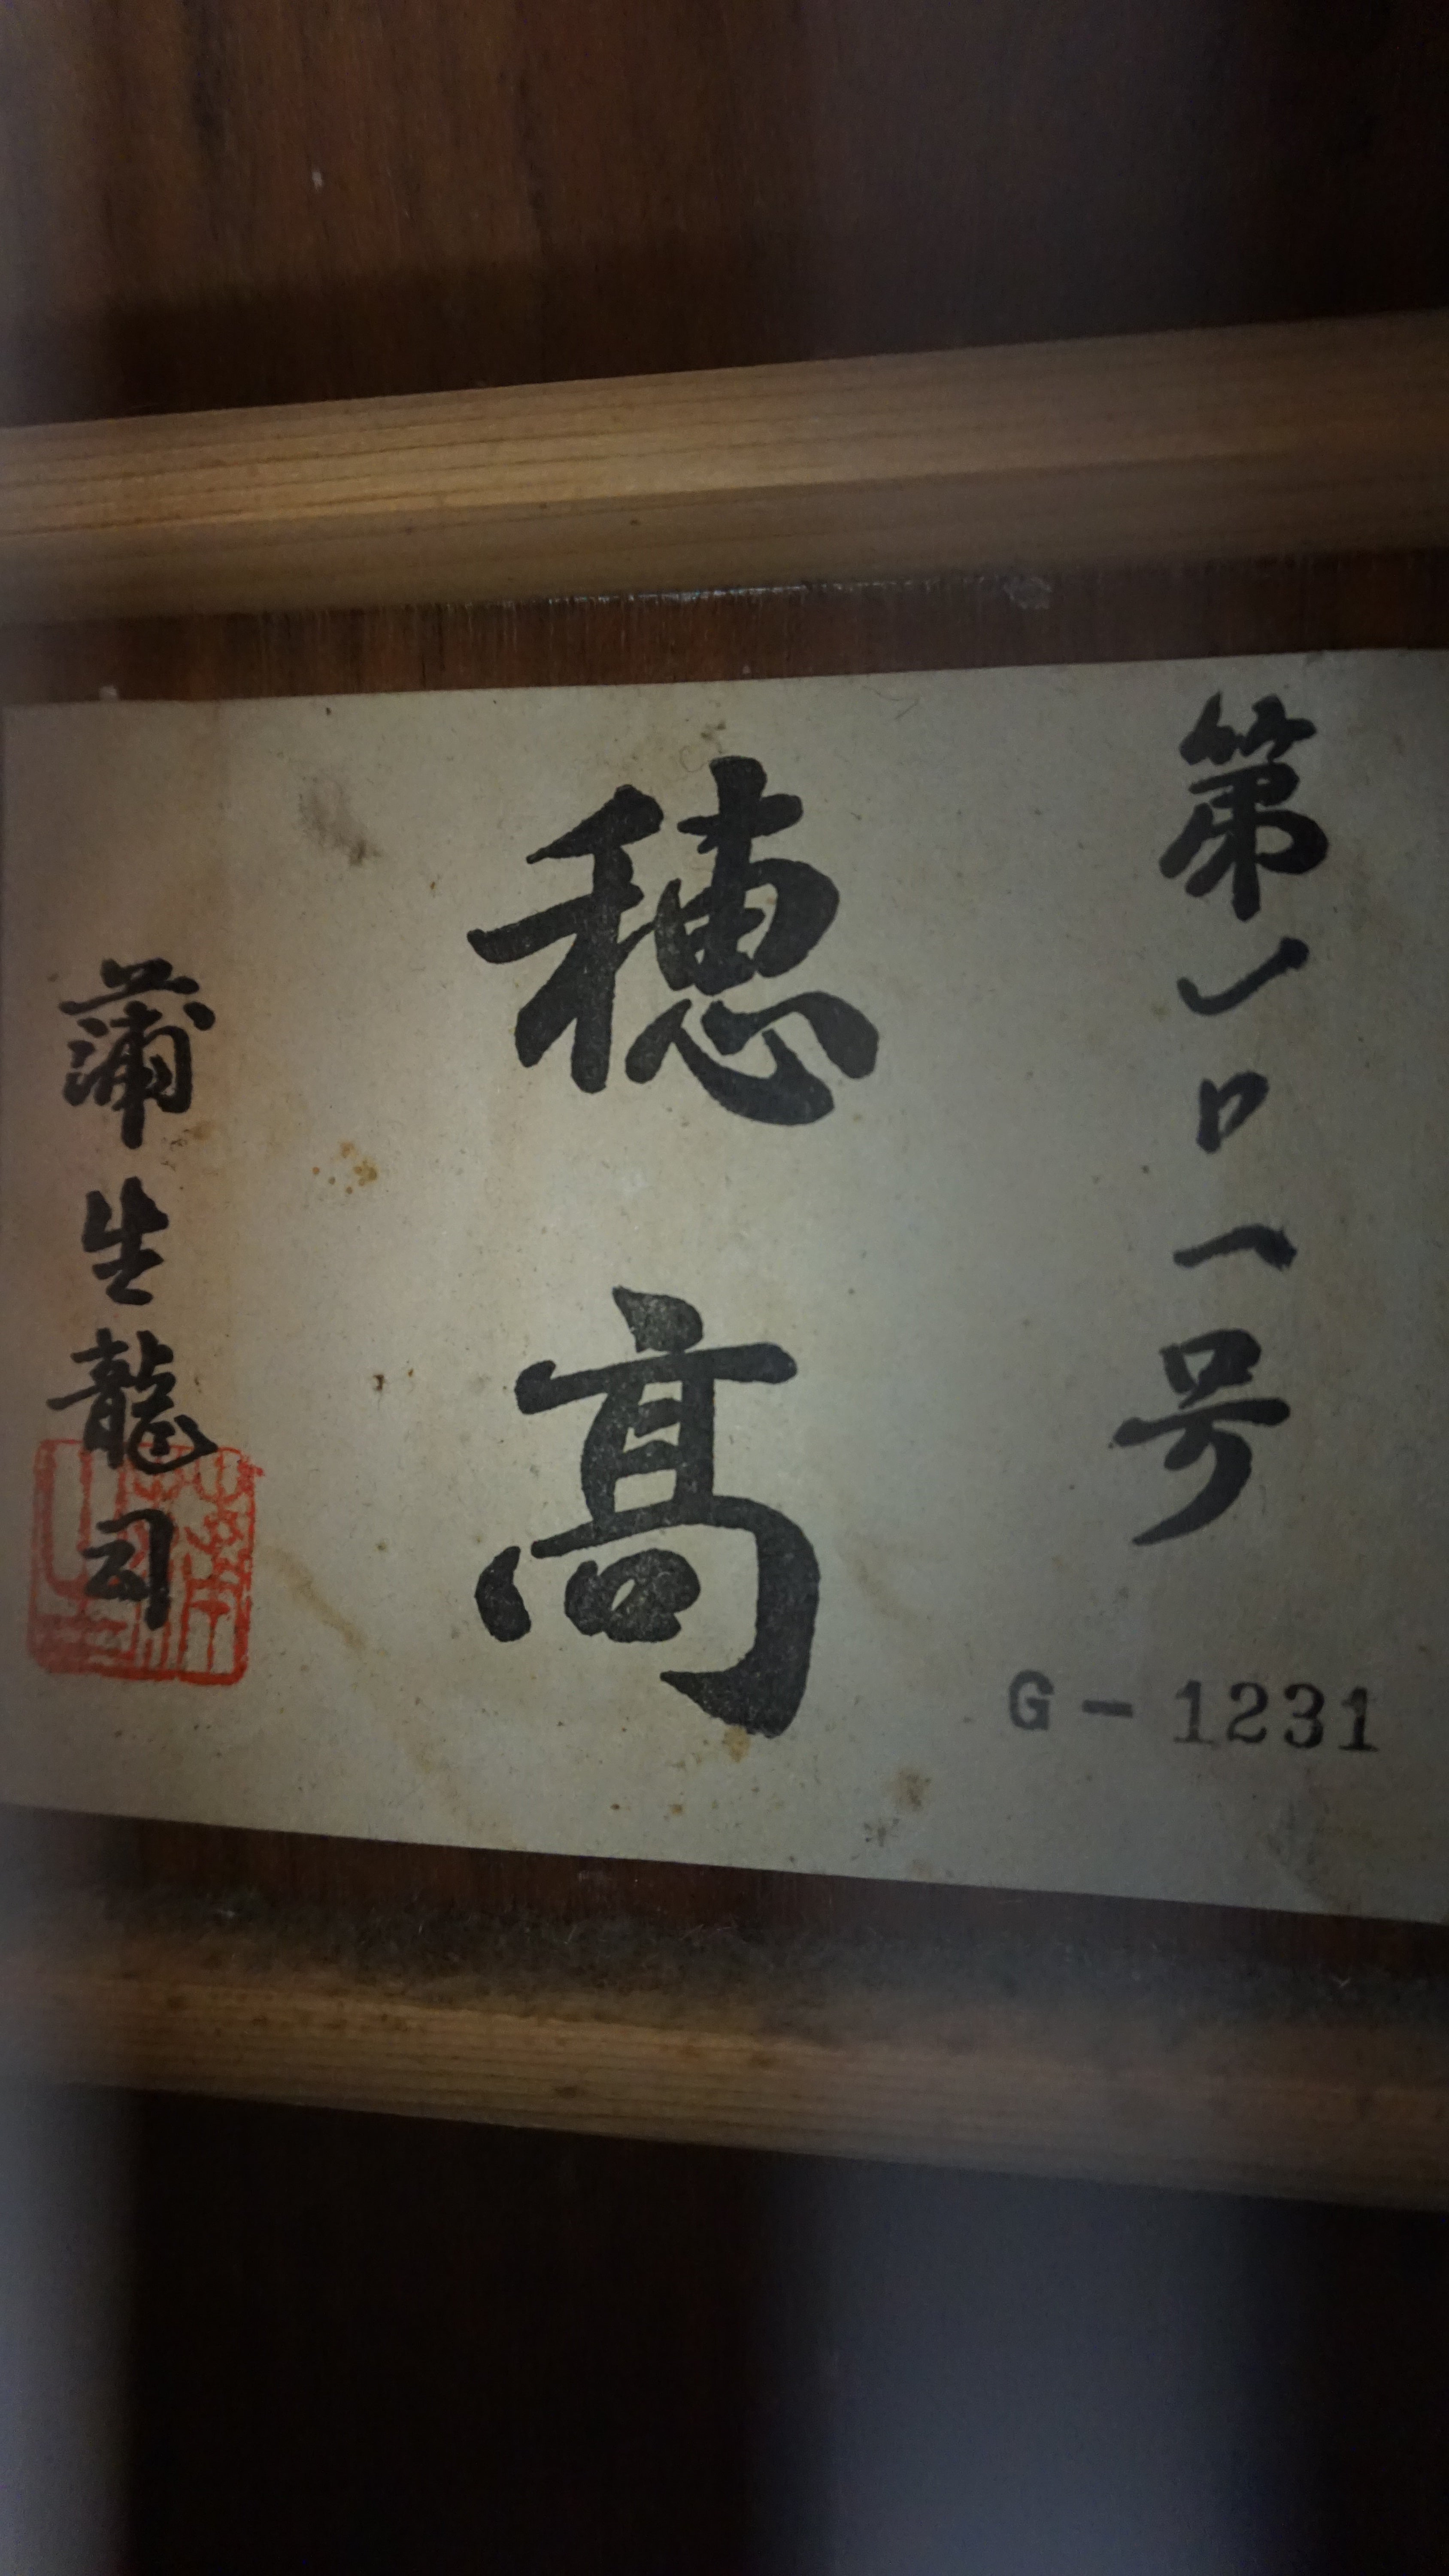 第一〇一号
穂高
蒲生龍司
G-1231